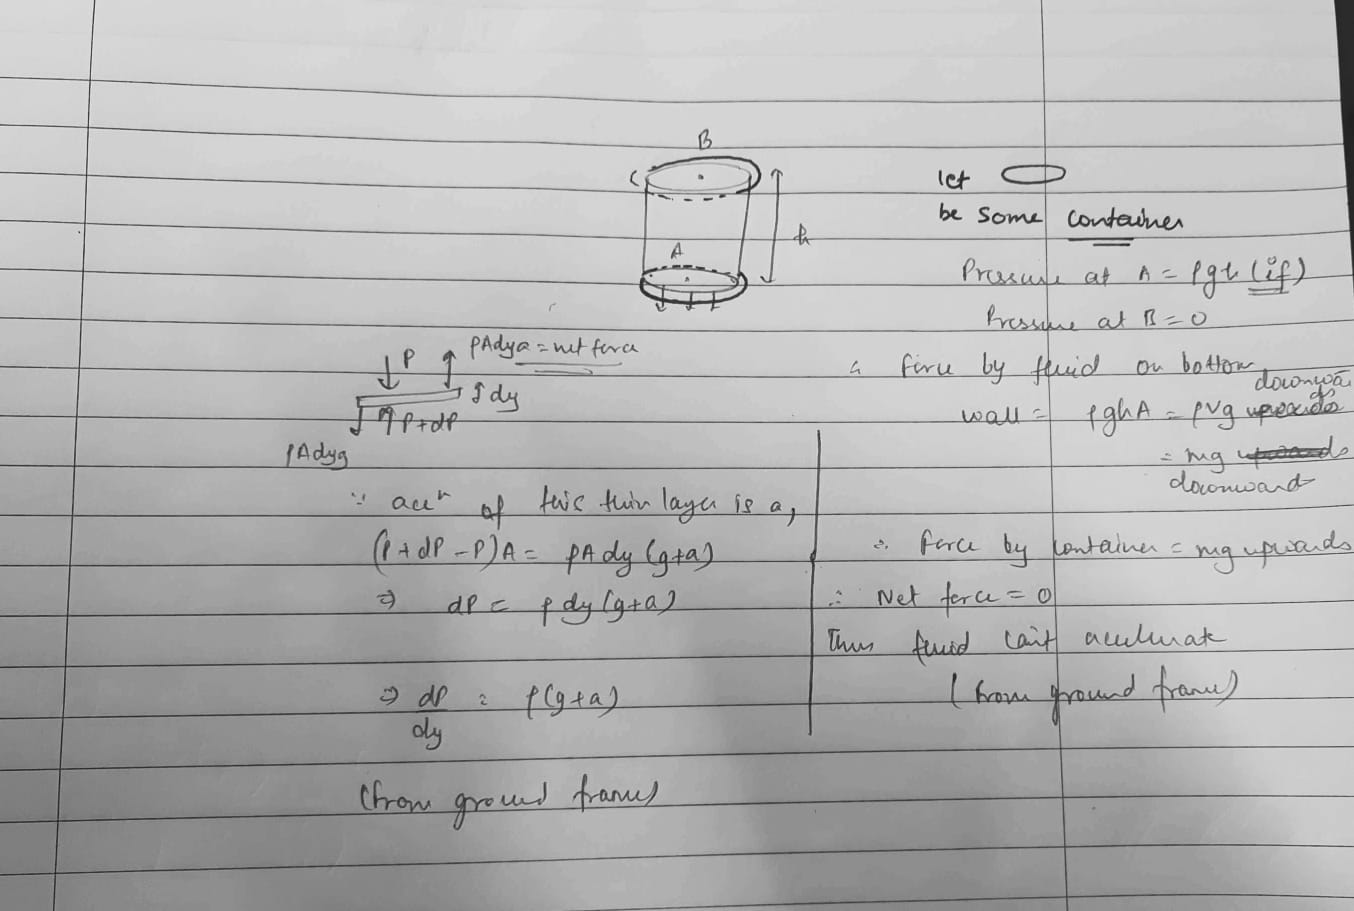 B
C
A
h
let
be some container
Pressure at A = ρgh (if)
Pressure at B = 0
∴ force by fluid on bottom
wall = ρghA = ρVg downwards
= mg
downward
∴ force by container = mg upwards
∴ Net force = 0
Thus fluid can't accelerate
(from ground frame)
P
ρAdya = net force
dy
P+dP
ρAdyg
∵ accⁿ of this thin layer is a,
(P + dP - P)A = ρA dy (g+a)
⇒ dP = ρ dy (g+a)
⇒ dP/dy = ρ(g+a)
(from ground frame)